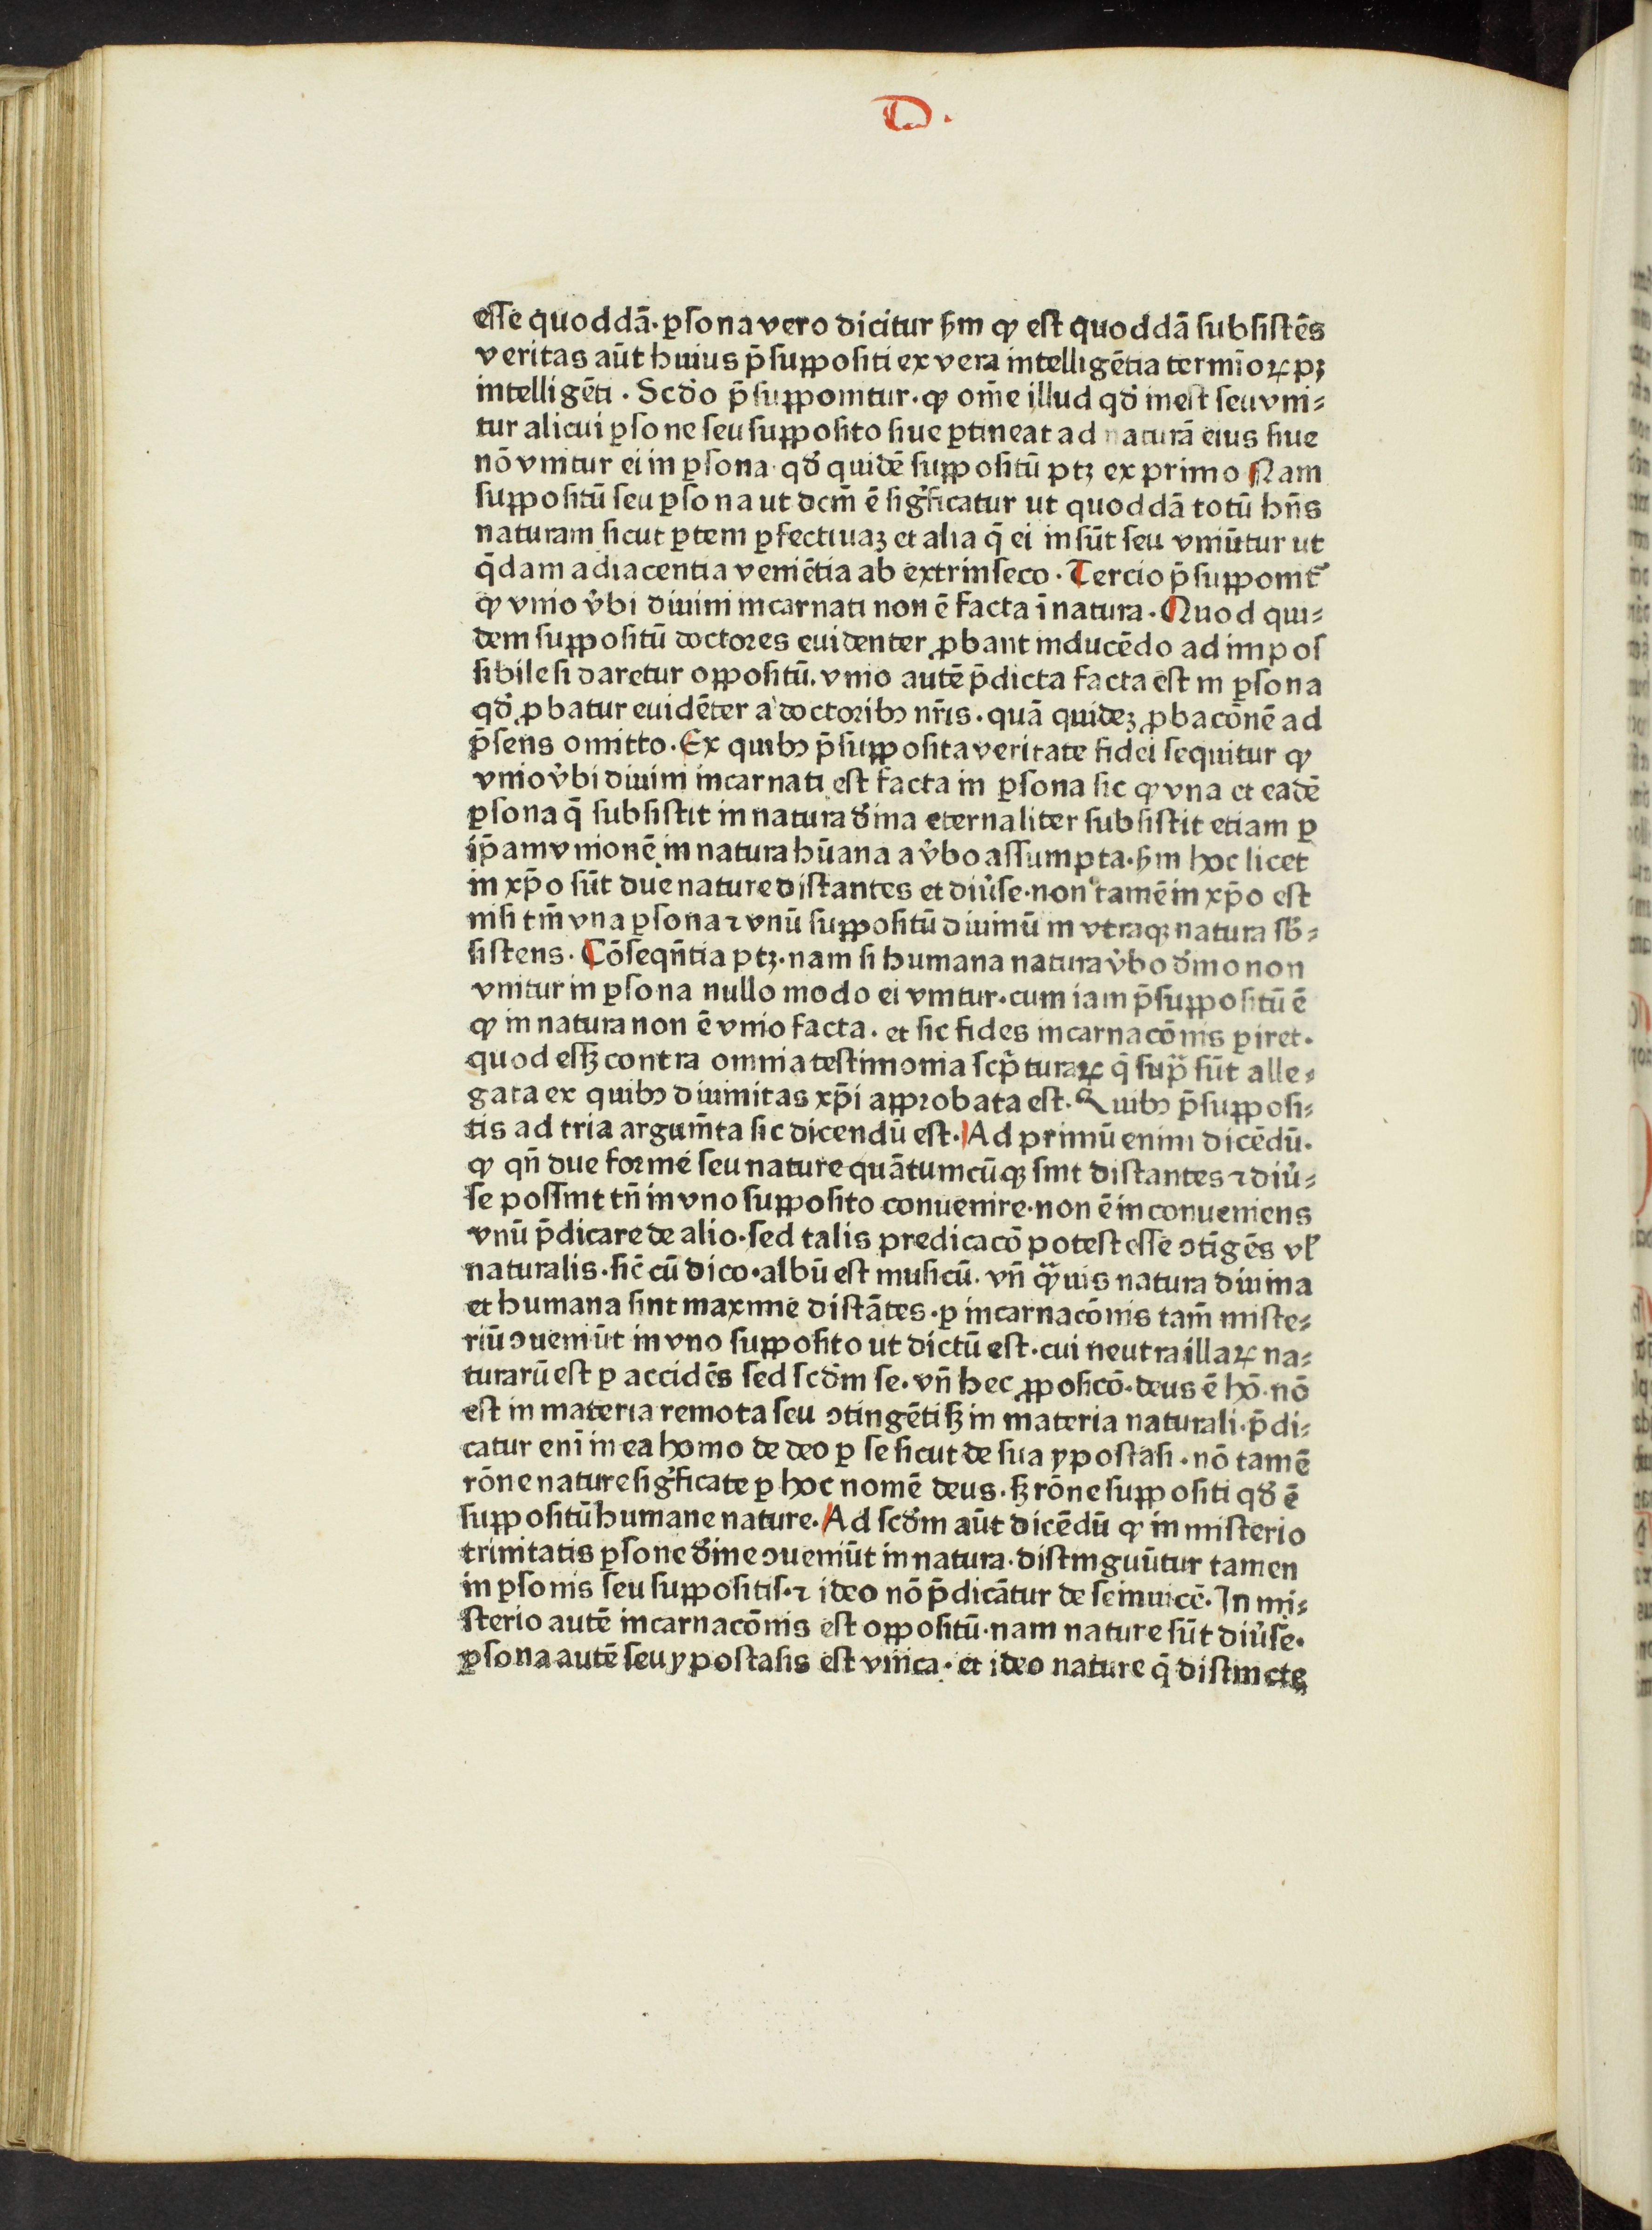 D.
esse quoddā. ꝑsona vero dicitur ẜm ꝙ est quoddā subsistēs
veritas aūt huius p̄suppositi ex vera intelligētia termīoꝝ pꝫ
intelligēti. Scďo p̄supponitur. ꝙ om̄e illud qď inest seu vni⸗
tur alicui ꝑsone seu supposito siue ꝑtineat ad naturā eius siue
nō vnitur ei in ꝑsona. qď quidē suppositū ptꝫ ex primo Nam
suppositū seu ꝑsona ut dcm̄ ē significatur ut quoddā totū hn̄s
naturam sicut ꝑtem ꝑfectiuaꝫ et alia q̄ ei insūt seu vniūtur ut
q̄dam adiacentia veniētia ab extrinseco. Tercio p̄supponit᷑
ꝙ vnio v̾bi diuini incarnati non ē facta ī natura. Quod qui⸗
dem suppositū doctores euidenter ꝓbant inducēdo ad impos
sibile si daretur oppositū. vnio autē p̄dicta facta est in ꝑsona
qď ꝓbatur euidēter a doctoribꝰ nr̄is. quā quideꝫ ꝓbacōnē ad
p̄sens omitto. Ex quibꝰ p̄supposita veritate fidei sequitur ꝙ
vnio v̾bi diuini incarnati est facta in ꝑsona sic ꝙ vna et eadē
ꝑsona q̄ subsistit in natura ďina eternaliter subsistit etiam ꝑ
ip̄am vnionē in natura hūana a v̾bo assumpta. ẜm hoc licet
in xp̄o sūt due nature distantes et diu̾se. non tamē in xp̄o est
nisi tm̄ vna ꝑsona ⁊ vnū suppositū diuinū in vtraqꝫ natura sb̄⸗
sistens. Cōseqn̄tia ptꝫ. nam si humana natura v̾bo ďino non
vnitur in ꝑsona nullo modo ei vnitur. cum iam p̄suppositū ē
ꝙ in natura non ē vnio facta. et sic fides incarnacōnis ꝑiret.
quod esꝫ contra omnia testimonia scp̄turaꝝ q̄ sup̄ sūt alle⸗
gata ex quibꝰ diuinitas xp̄i approbata est. Quibꝰ p̄supposi⸗
tis ad tria argum̄ta sic dicendū est. Ad primū enim dicēdū.
ꝙ qn̄ due forme seu nature quātumcūqꝫ sint distantes ⁊ diu̾⸗
se possint tn̄ in vno supposito conuenire. non ē inconueniens
vnū p̄dicare de alio. sed talis predicacō potest esse ꝯtīgēs vl̾
naturalis. sic̄ cū dico. albū est musicū. vn̄ qᷓuis natura diuina
et humana sint maxime distātes. ꝑ incarnacōnis tam̄ miste⸗
riū ꝯueniūt in vno supposito ut dictū est. cui neutra illaꝝ na⸗
turarū est ꝑ accidēs sed scďm se. vn̄ hec ꝓposicō. deus ē hō. nō
est in materia remota seu ꝯtingēti sꝫ in materia naturali. p̄di⸗
catur enī in ea homo de deo ꝑ se sicut de sua ypostasi. nō tamē
rōne nature significate ꝑ hoc nomē deus. sꝫ rōne suppositi qď ē
suppositū humane nature. Ad scďm aūt dicēdū ꝙ in misterio
trinitatis ꝑsone ďine ꝯueniūt in natura. distinguūtur tamen
in ꝑsonis seu suppositis. ⁊ ideo nō p̄dicātur de seinuicē. In mi⸗
sterio autē incarnacōnis est oppositū. nam nature sūt diu̾se.
ꝑsona autē seu ypostasis est vnica. et ideo nature q̄ distincte